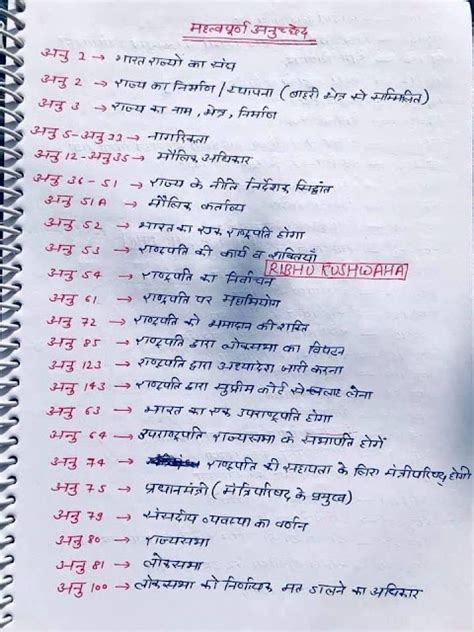 महत्वपूर्ण अनुच्छेद
अनु 1 → भारत राज्यों का संघ
अनु 2 → राज्य का निर्माण / स्थापना (बाहरी क्षेत्र को सम्मिलित)
अनु 3 → राज्य का नाम, क्षेत्र, निर्माण
अनु 5-अनु 11 → नागरिकता
अनु 12-अनु 35 → मौलिक अधिकार
अनु 36-51 → राज्य के नीति निर्देशक सिद्धांत
अनु 51A → मौलिक कर्तव्य
अनु 52 → भारत का एक राष्ट्रपति होगा
अनु 53 → राष्ट्रपति की कार्य व शक्तियाँ
RIBHU KUSHWAHA
अनु 54 → राष्ट्रपति का निर्वाचन
अनु 61 → राष्ट्रपति पर महाभियोग
अनु 72 → राष्ट्रपति को क्षमादान की शक्ति
अनु 85 → राष्ट्रपति द्वारा लोकसभा का विघटन
अनु 123 → राष्ट्रपति द्वारा अध्यादेश जारी करना
अनु 143 → राष्ट्रपति द्वारा सुप्रीम कोर्ट से सलाह लेना
अनु 63 → भारत का एक उपराष्ट्रपति होगा
अनु 64 → उपराष्ट्रपति राज्यसभा के सभापति होगें
अनु 74 → राष्ट्रपति की सहायता के लिए मंत्रीपरिषद् होगी
अनु 75 → प्रधानमंत्री (मंत्रिपरिषद के प्रमुख)
अनु 79 → संसदीय व्यवस्था का वर्णन
अनु 80 → राज्यसभा
अनु 81 → लोकसभा
अनु 100 → लोकसभा को निर्णायक मत डालने का अधिकार